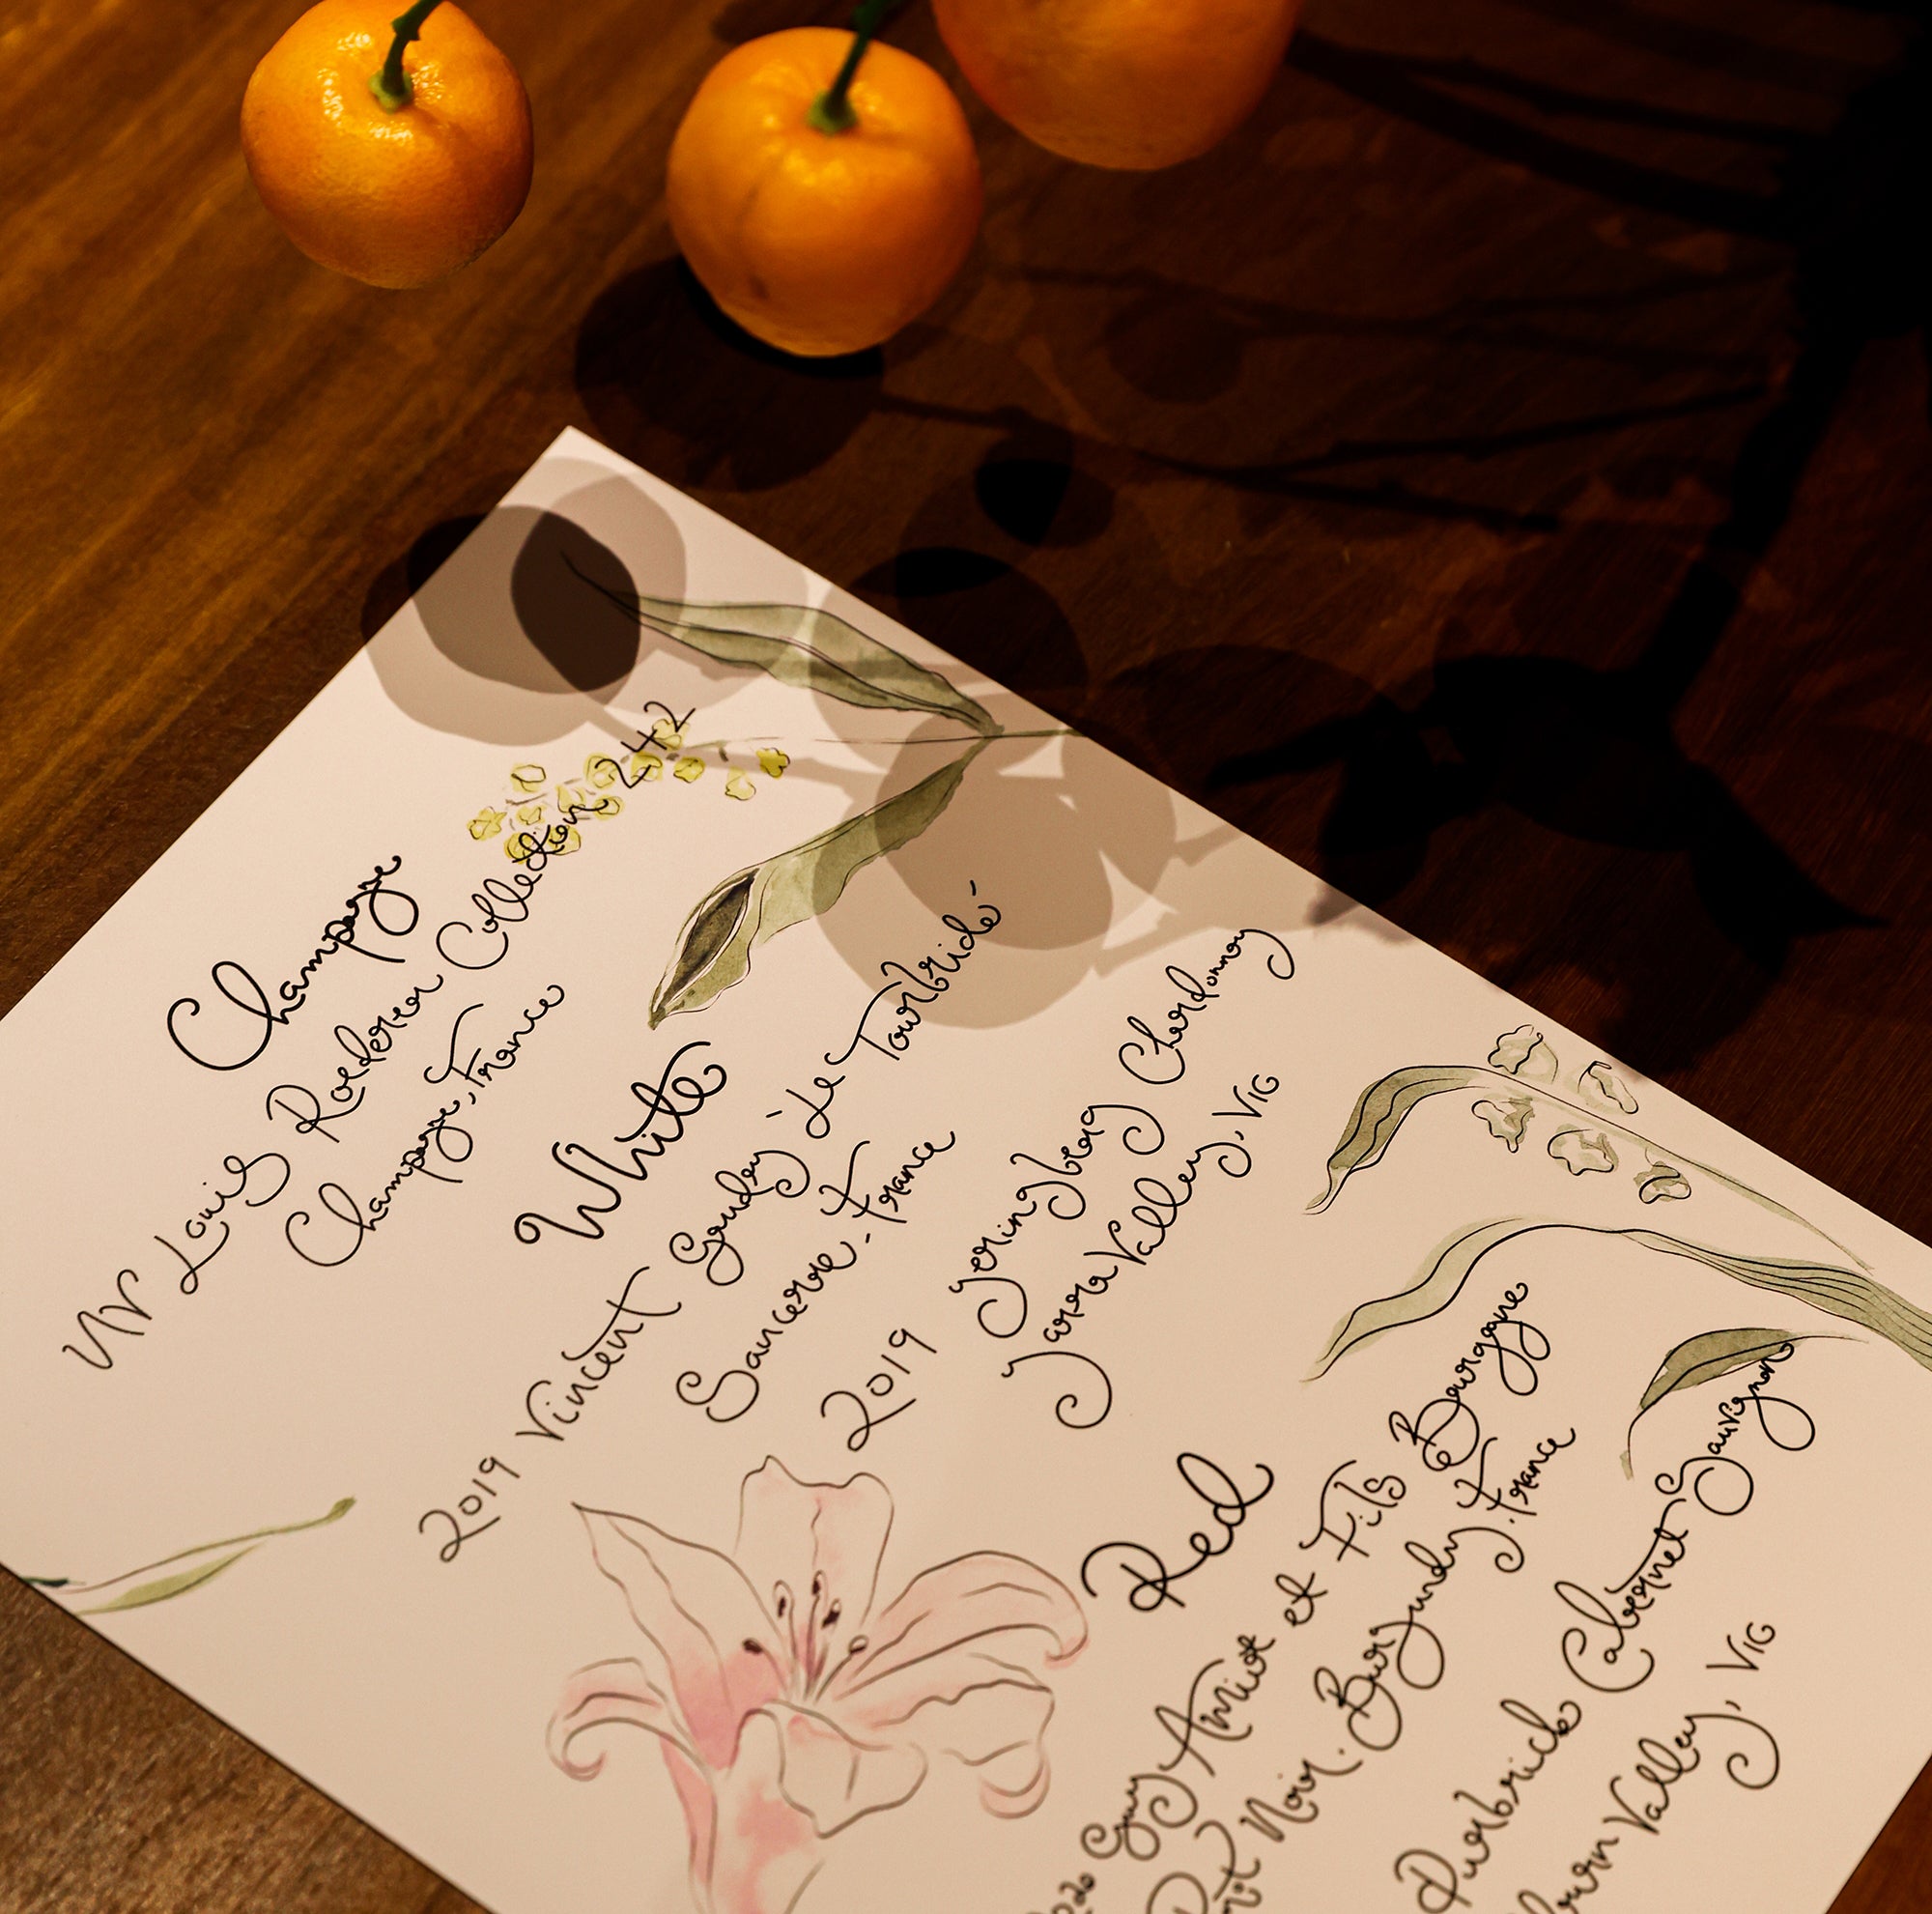 Champagne
NV Louis Roederer Collection 242
Champagne, France
White
2019 Vincent Gaudry 'Le Tourbride'
Sancerre - France
2019 Yeringberg Chardonnay
Yarra Valley, VIC
Red
2020 Guy Amiot et Fils Bourgogne
Pinot Noir. Burgundy. France
Purbrick Cabernet Sauvignon
Valley, VIC